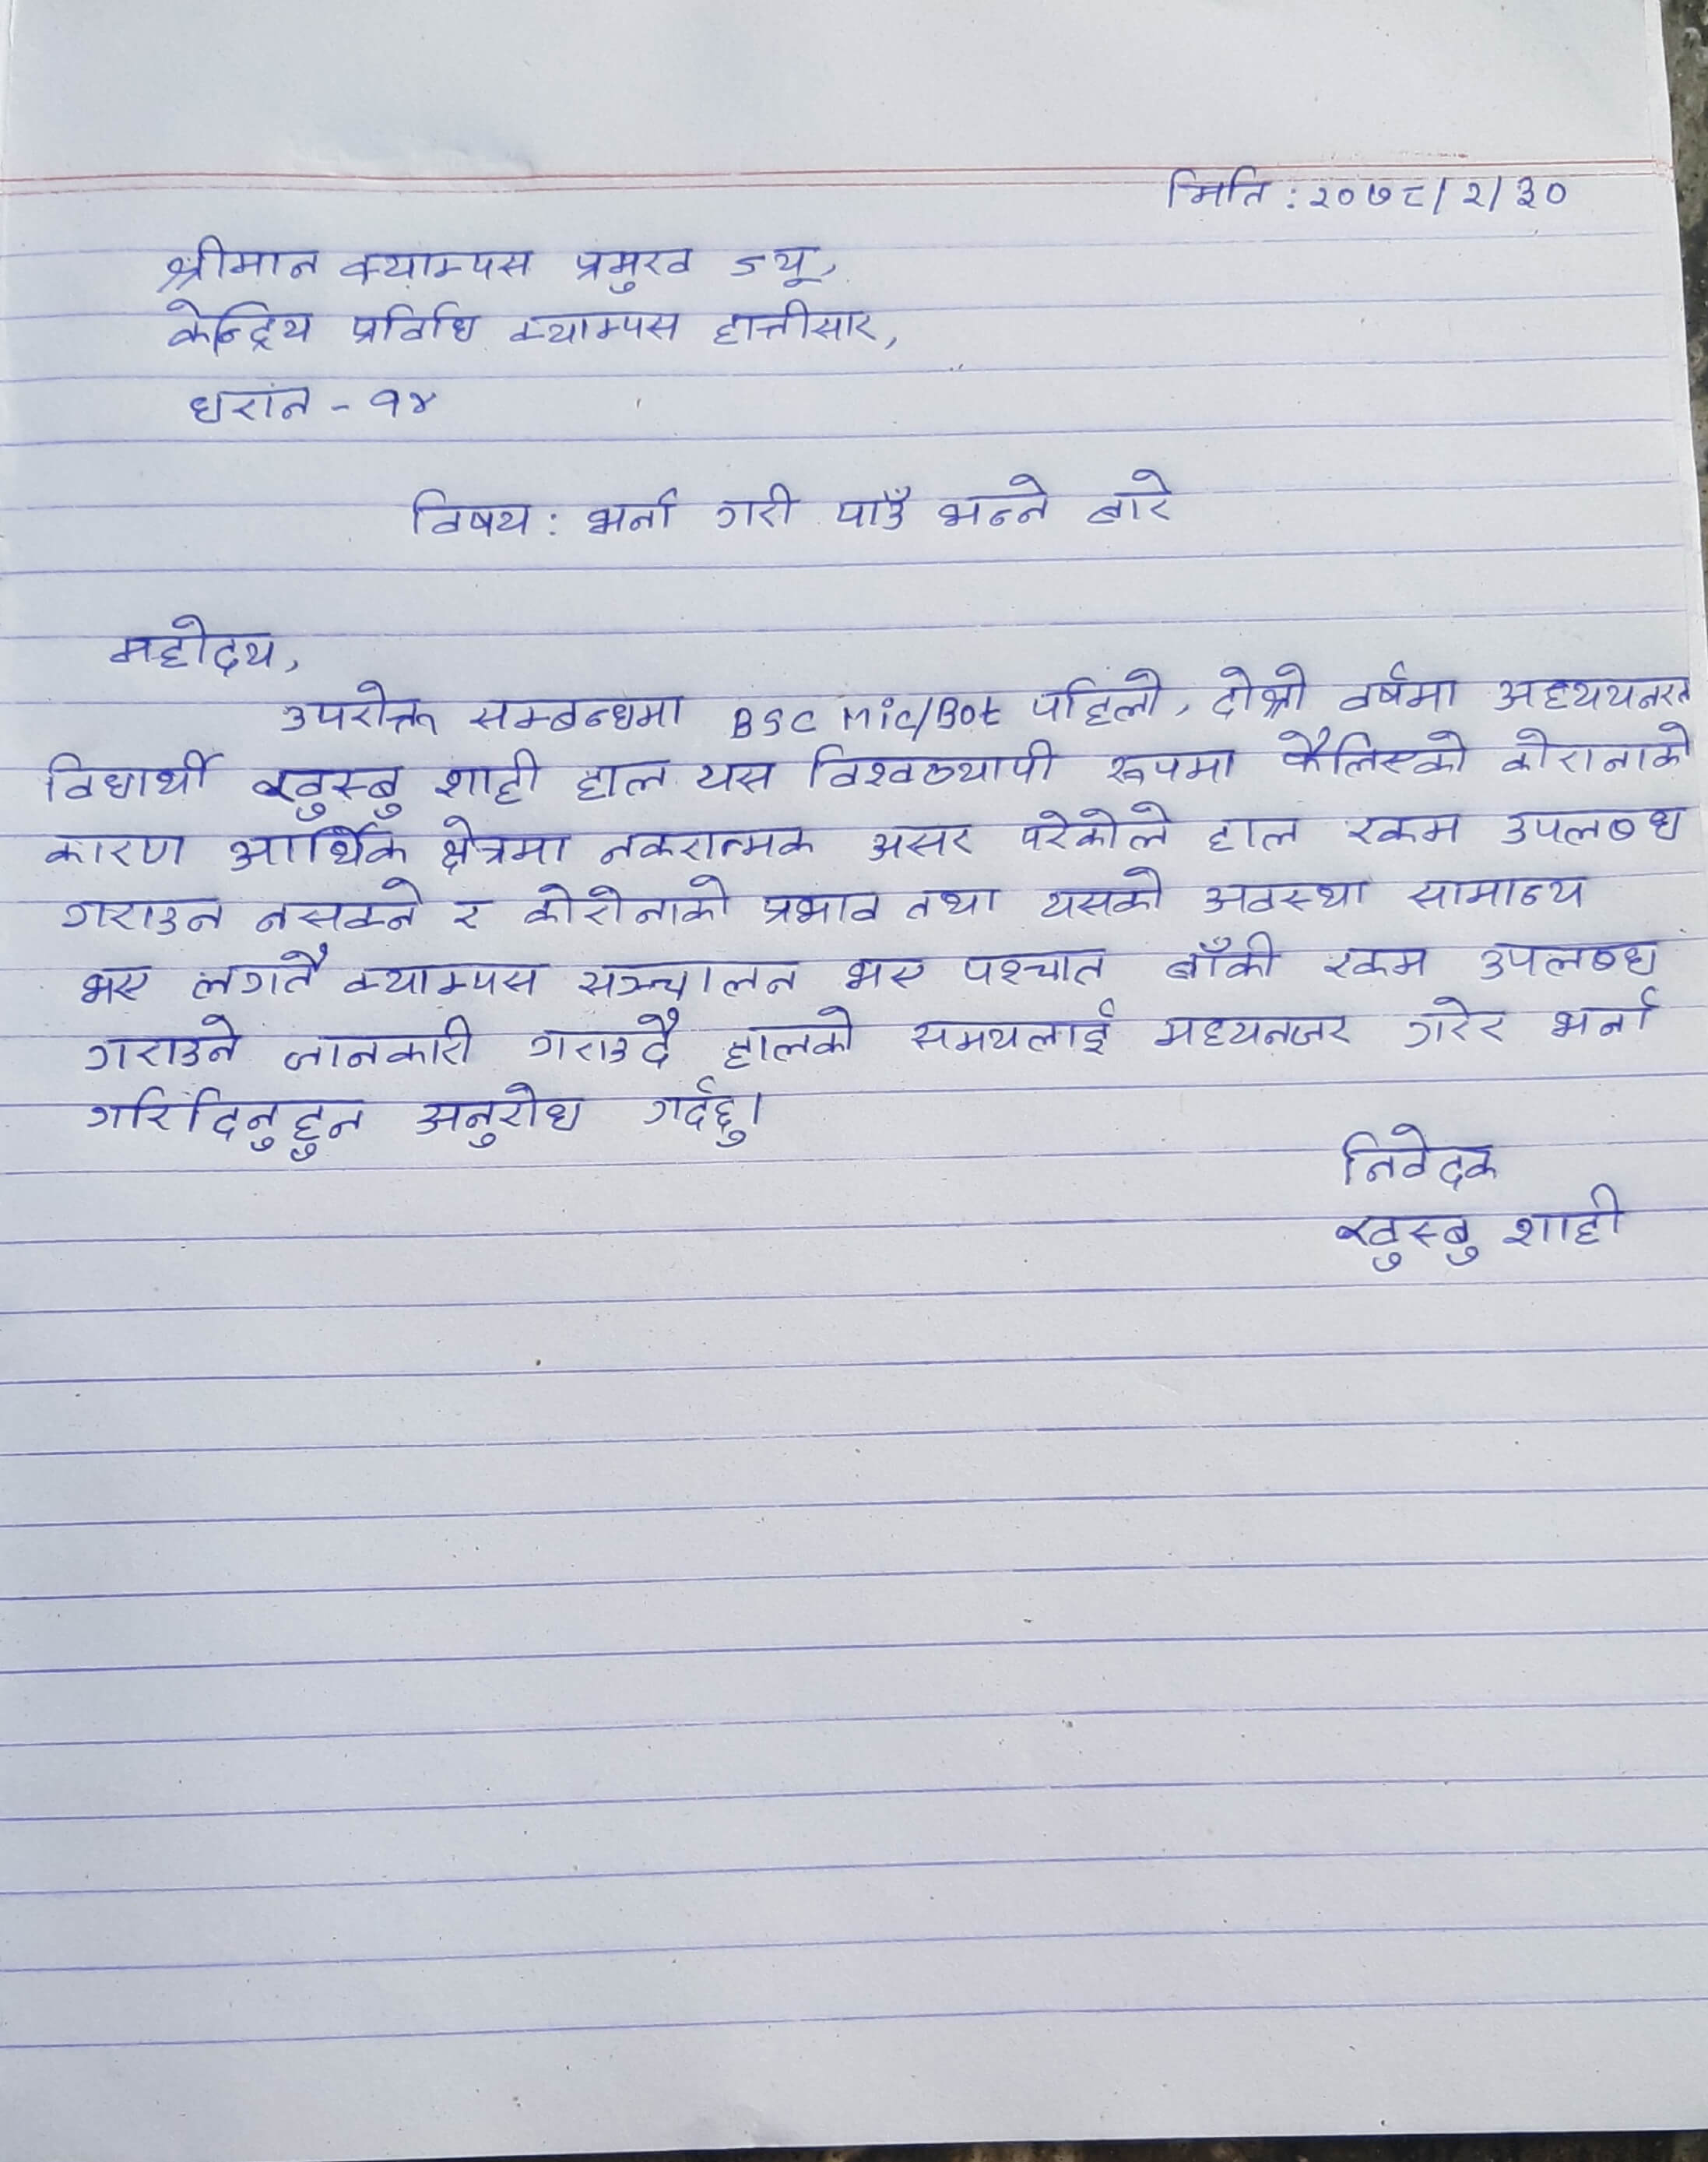 मिति : २०७८/२/३०
श्रीमान क्याम्पस प्रमुख ज्यू,
केन्द्रिय प्रविधि क्याम्पस हात्तीसार,
धरान - १४
विषय : भर्ना गरी पाउँ भन्ने बारे
महोदय,
उपरोक्त सम्बन्धमा BSC Mic/Bot पहिलो, दोश्रो वर्षमा अध्ययनरत
विद्यार्थी खुस्बु शाही हाल यस विश्वव्यापी रूपमा फैलिएको कोरानाको
कारण आर्थिक क्षेत्रमा नकरात्मक असर परेकोले हाल रकम उपलब्ध
गराउन नसक्ने र कोरोनाको प्रभाव तथा यसको अवस्था सामान्य
भए लगतै क्याम्पस सञ्चालन भए पश्चात बाँकी रकम उपलब्ध
गराउने जानकारी गराउदै हालको समयलाई मध्यनजर गरेर भर्ना
गरिदिनुहुन अनुरोध गर्दछु।
निवेदक
खुस्बु शाही